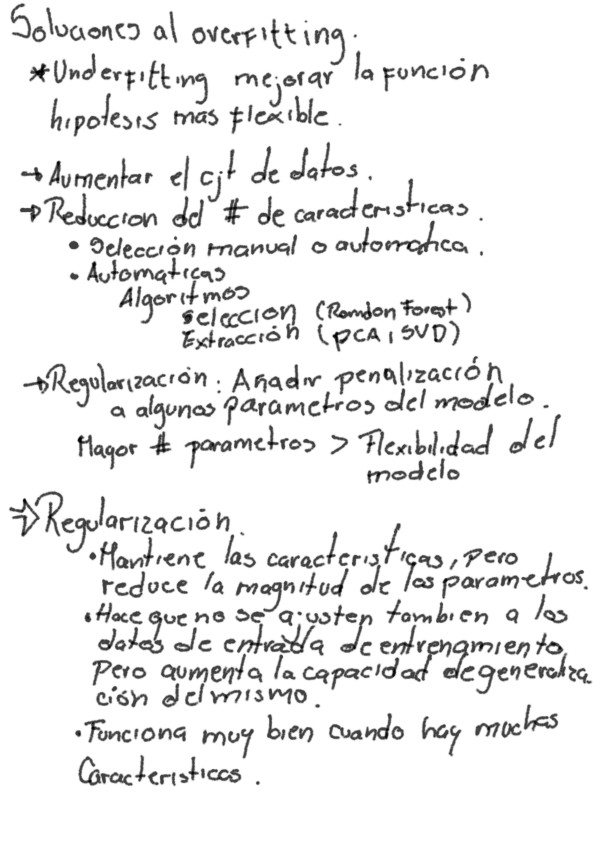 Soluciones al overfitting.
*Underfitting mejorar la función
hipotesis mas flexible.
→ Aumentar el cjt de datos.
→ Reduccion del # de caracteristicas.
• Selección manual o automatica.
• Automaticas
Algoritmos
seleccion (Romdon Forest)
Extracción (PCA, SVD)
→ Regularización: Añadir penalización
a algunos parametros del modelo.
Mayor # parametros > Flexibilidad del
modelo
⇒ Regularización.
• Mantiene las caracteristicas, pero
reduce la magnitud de los parametros.
• Hace que no se ajusten tambien a los
datos de entrada de entrenamiento,
pero aumenta la capacidad de generaliza
ción del mismo.
• Funciona muy bien cuando hay muchas
Caracteristicas.